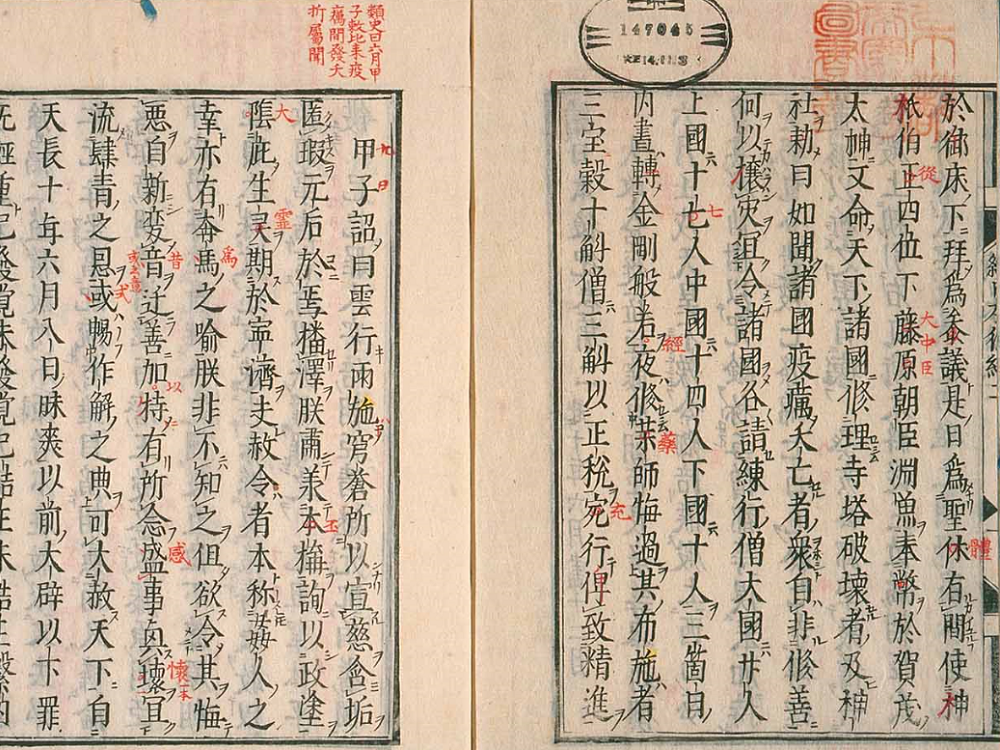 於御床下拜爲參議是日爲聖休有間使神
祇伯正四位下藤原朝臣淵魚奉幣於賀茂
太神文命天下諸國修理寺塔破壞者及神
社勅曰如聞諸國疫癘夭亡者衆自非修善
何以攘灾宜令諸國各請練行僧大國廿人
上國十七人中國十四人下國十人三箇日
内晝轉金剛般若夜修茱師悔過其布施者
三宝穀十斛僧三斛以正稅宛行俾致精進
甲子詔曰雲行雨施穹蒼所以宣慈含垢
匿瑕元后於焉播澤朕肅羕本樞詢以政塗
蔭庇生灵期於寧濟夫赦令者本称姧人之
幸亦有奔馬之喩朕非不知之但欲令其悔
悪自新変音迁善加特有所念盛事興壞宜
流肆眚之恩或暢作解之典可大赦天下自
天長十年六月八日昧爽以前大辟以下罪
无軽重已發覚未發覚已結正未結正繋囚
類史曰六月甲
子敷比来疫
癘間發夭
折屬聞
從
大中臣
體
七
經
藥
充
大
靈
爲
昔
以
感
懷一本
式
147045